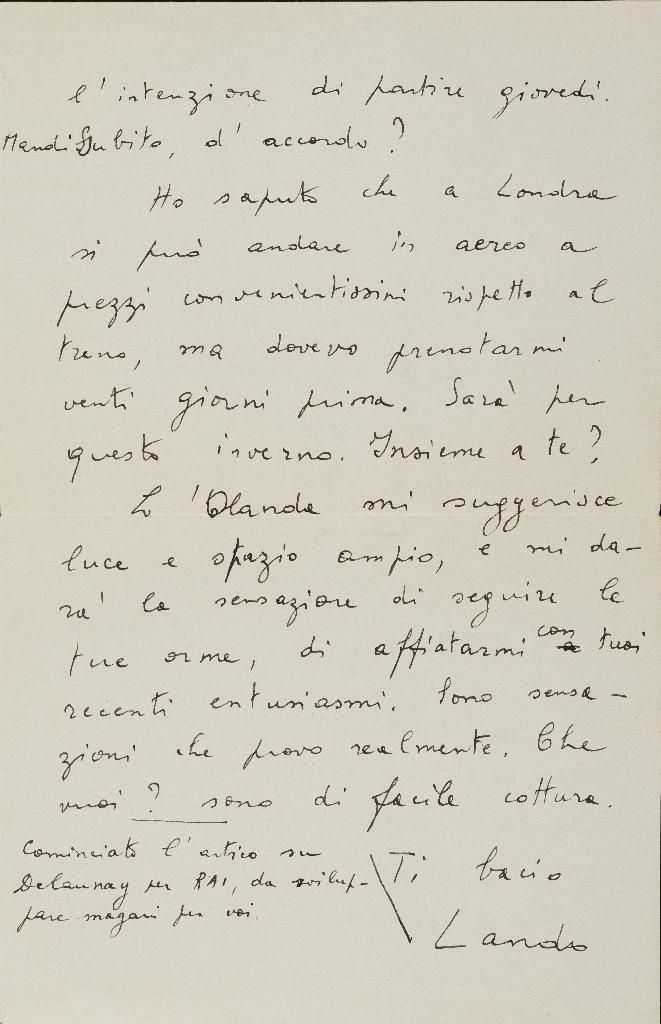 l'intenzione di partire giovedì.
Mandi subito, d'accordo?
Ho saputo che a Londra
si può andare in aereo a
prezzi convenientissimi rispetto al
treno, ma dovevo prenotarmi
venti giorni prima. Sarà per
questo inverno. Insieme a te?
L'Olanda mi suggerisce
luce e spazio ampio, e mi da-
rà la sensazione di seguire le
tue orme, di affiatarmi con tuoi
recenti entusiasmi. Sono sensa-
zioni che provo realmente. Che
vuoi? sono di facile cottura.
Cominciato l'artico su
Delaunay per RAI, da svilup-
pare magari per voi.
Ti bacio
Lando